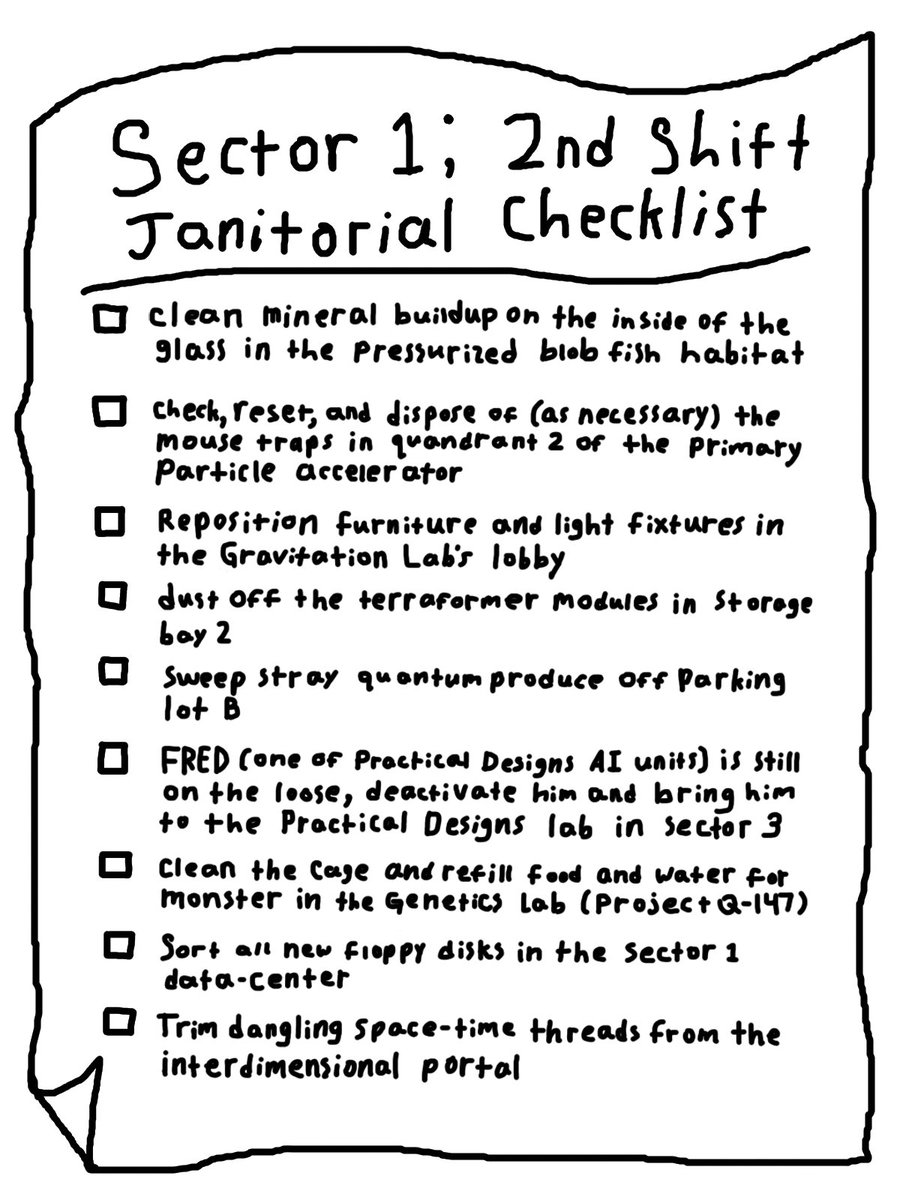 Sector 1; 2nd Shift
Janitorial Checklist
clean mineral buildup on the inside of the
glass in the pressurized blob fish habitat
check, reset, and dispose of (as necessary) the
mouse traps in quandrant 2 of the primary
particle accelerator
Reposition furniture and light fixtures in
the Gravitation Lab's lobby
dust off the terraformer modules in storage
bay 2
Sweep stray quantum produce off parking
lot B
FRED (one of Practical Designs AI units) is still
on the loose, deactivate him and bring him
to the Practical Designs lab in sector 3
Clean the cage and refill food and water for
monster in the Genetics Lab (Project Q-147)
Sort all new floppy disks in the sector 1
data-center
Trim dangling space-time threads from the
interdimensional portal